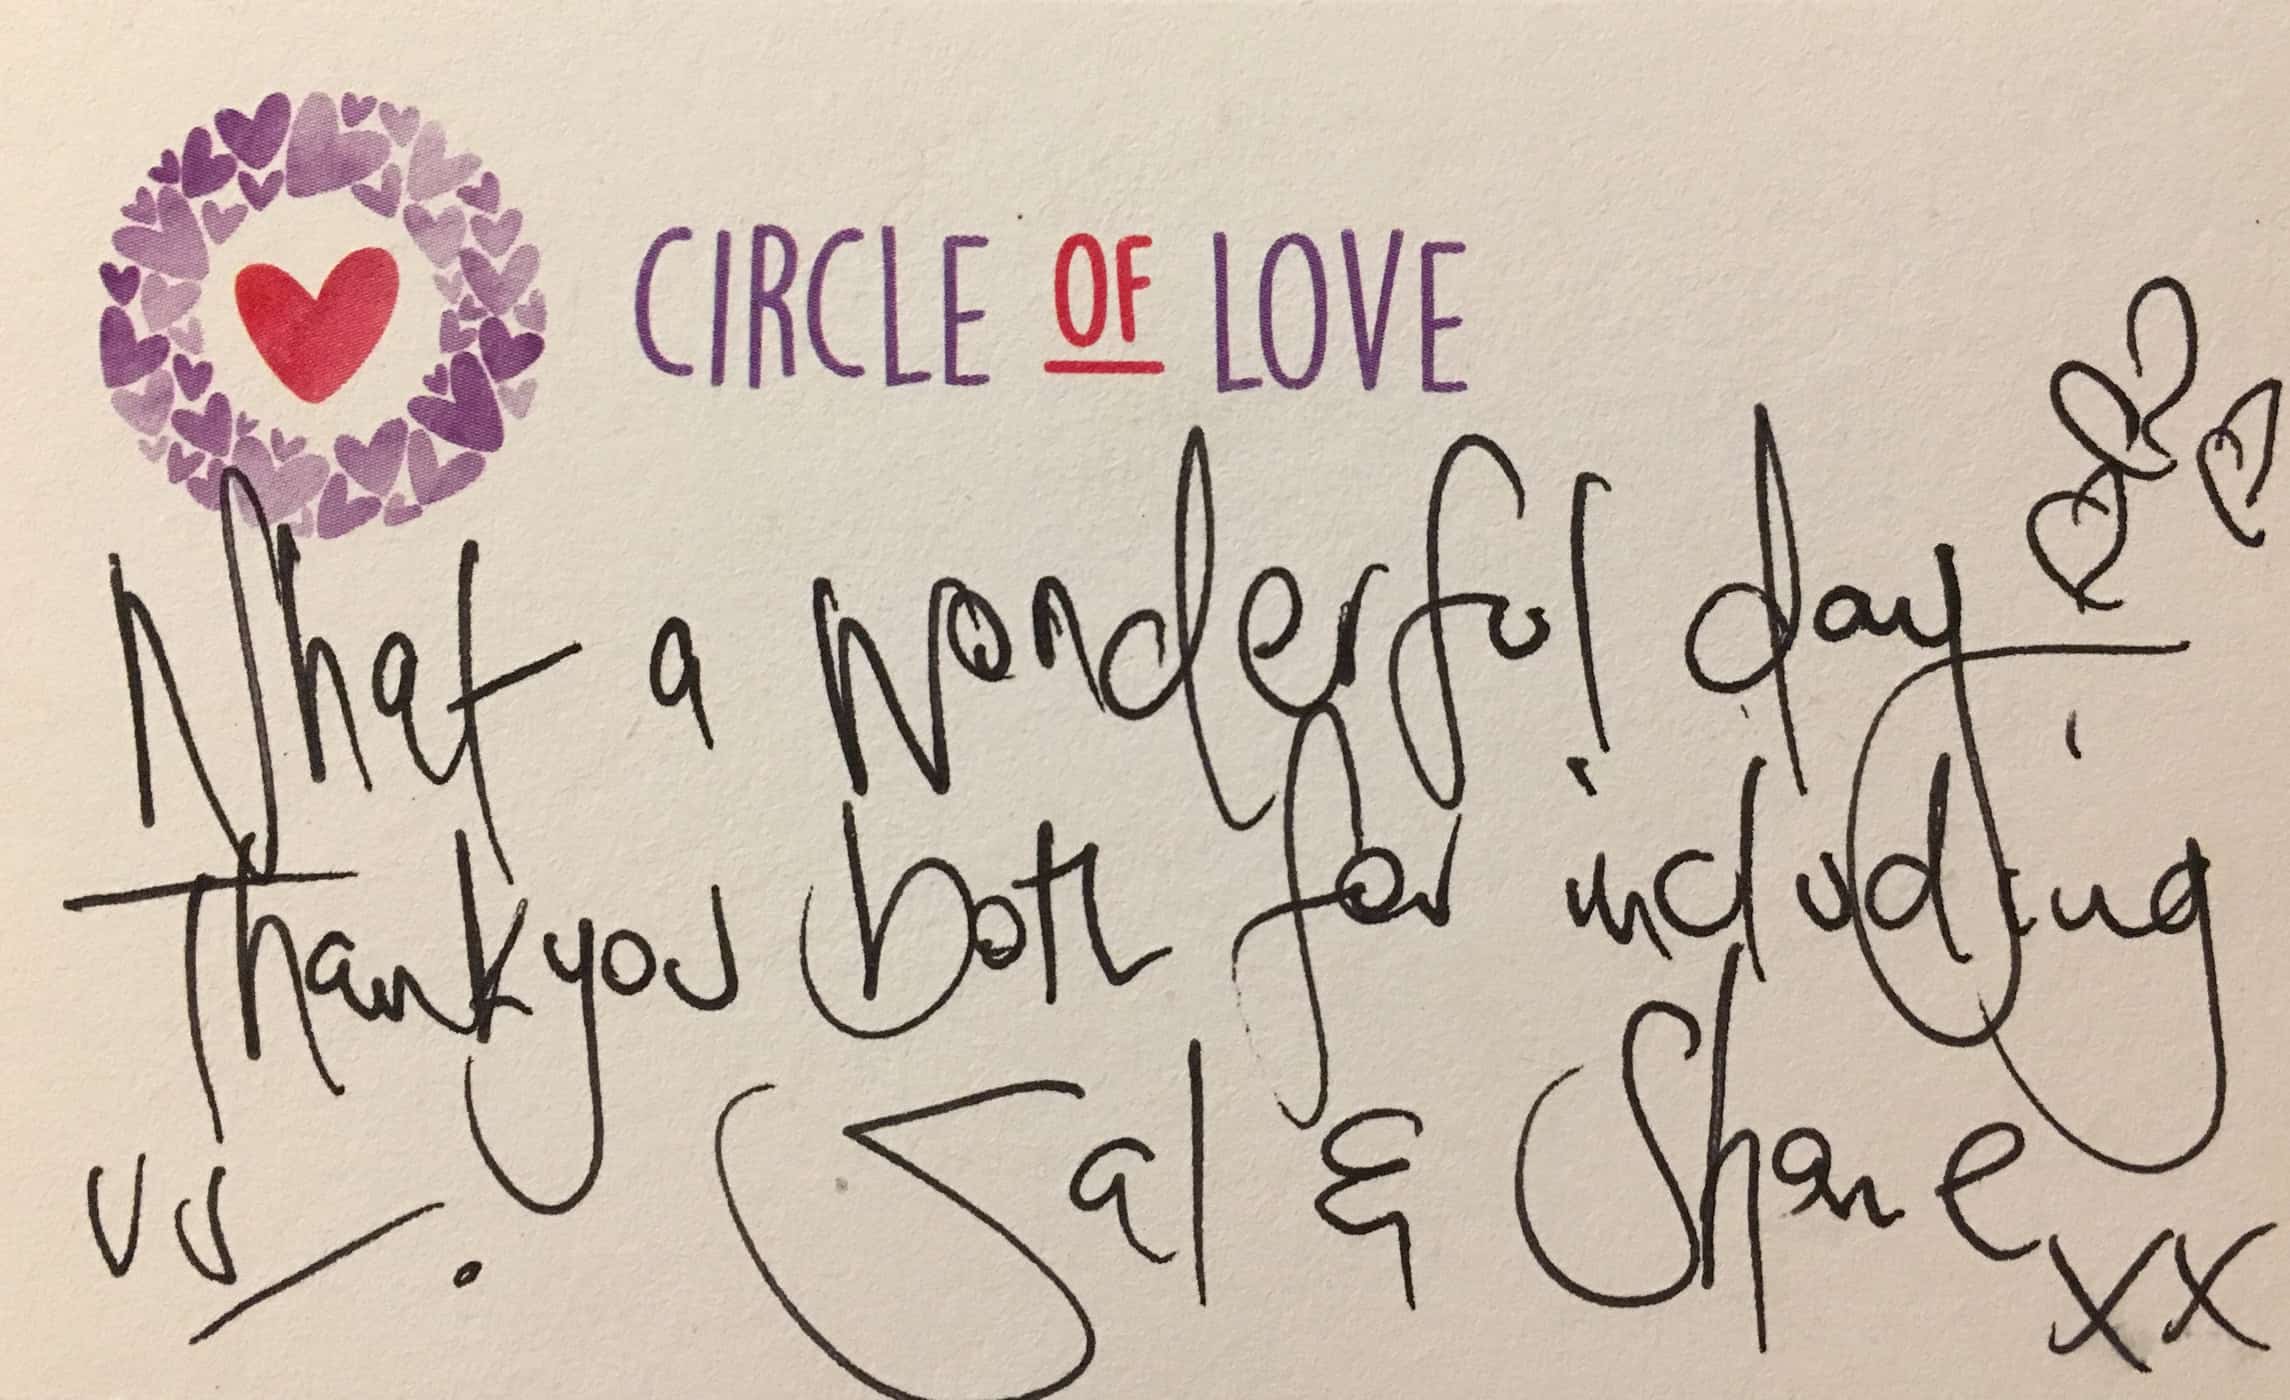 CIRCLE OF LOVE
What a wonderful day
Thankyou both for including
us. Sal & Shane xx